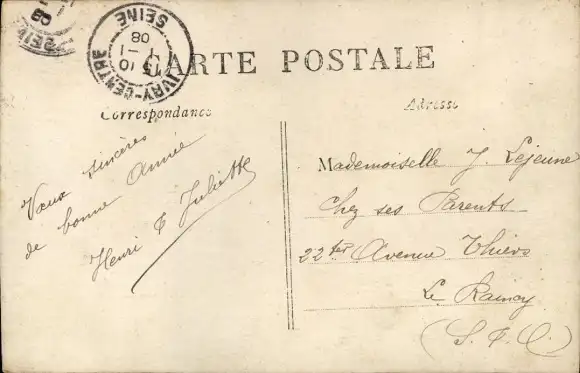 CARTE POSTALE
Correspondance
Adresse
IVRY-CENTRE
SEINE
08
Vœux sincères
de bonne Année
Henri & Juliette
Mademoiselle J. Lejeune
Chez ses Parents
22 ter Avenue Thiers
Le Raincy
(S. & O.)